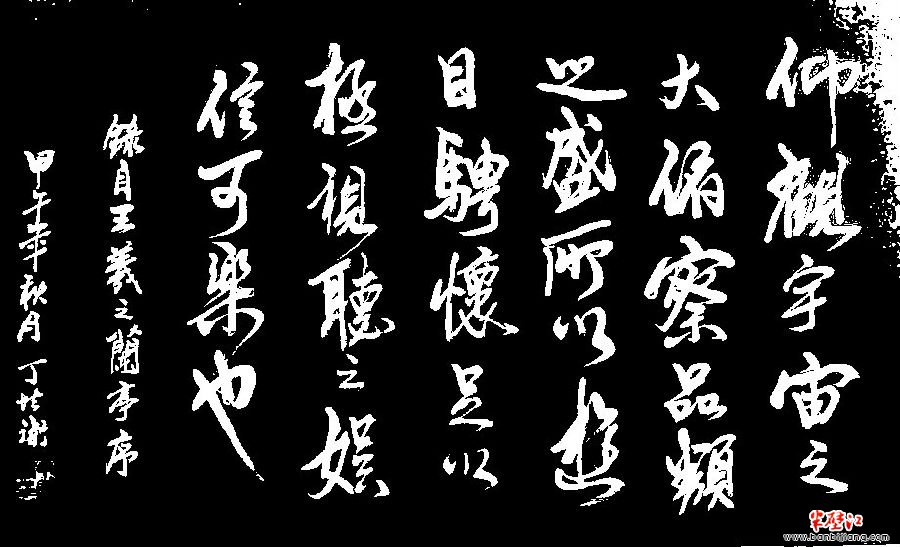 仰觀宇宙之
大俯察品類
之盛所以遊
目騁懷足以
極視聽之娛
信可樂也
錄自王羲之蘭亭序
甲午年秋月丁
半壁江
www.banbijiang.com